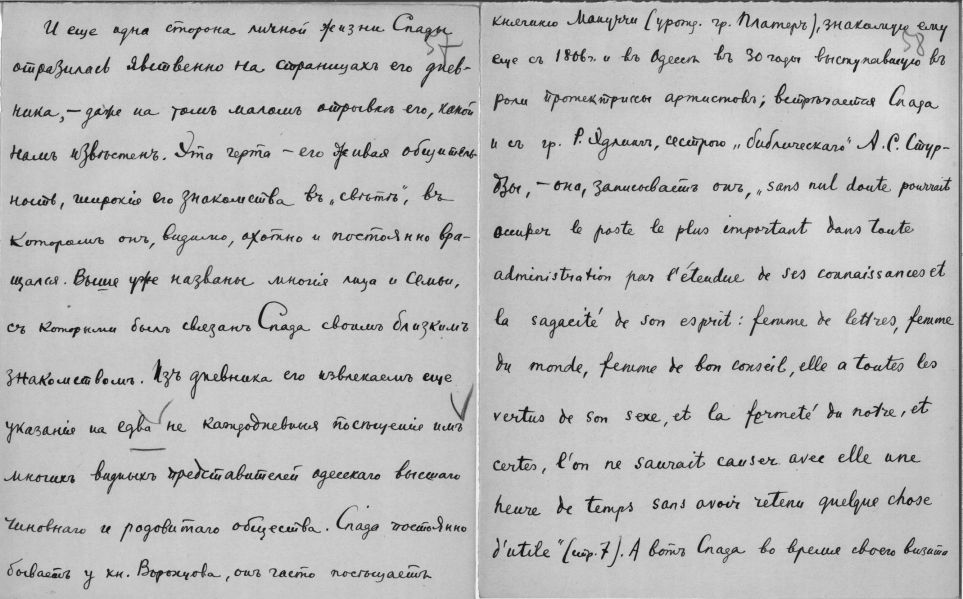 И еще одна сторона личной жизни Спады
37
отразилась явственно на страницахъ его днев-
ника, — даже на томъ маломъ отрывкѣ его, какой
намъ извѣстенъ. Эта черта — его живая общитель-
ность, широкія его знакомства въ „свѣтѣ", въ
которомъ онъ, видимо, охотно и постоянно вра-
щался. Выше уже названы многія лица и семьи,
съ которыми былъ связанъ Спада своимъ близкимъ
знакомствомъ. Изъ дневника его извлекаемъ еще
указанія на едва не каждодневныя посѣщенія имъ
многихъ видныхъ представителей одесскаго высшаго
чиновнаго и родовитаго общества. Спада постоянно
бываетъ у кн. Воронцова, онъ часто посѣщаетъ
княгиню Мануччи (урожд. гр. Платеръ), знакомую ему
38
еще съ 1806 г. и въ Одессѣ въ 30 годы выступавшую въ
роли протектриссы артистовъ; встрѣчается Спада
и съ гр. Р. Эдлингъ, сестрою „библическаго" А. С. Стур-
дзы, — она, записываетъ онъ, „sans nul doute pourrait
occuper le poste le plus important dans toute
administration par l'étendue de ses connaissances et
la sagacité de son esprit: femme de lettres, femme
du monde, femme de bon conseil, elle a toutes les
vertus de son sexe, et la fermeté du notre, et
certes, l'on ne saurait causer avec elle une
heure de temps sans avoir retenu quelque chose
d'utile" (стр. 7). А вотъ Спада во время своего визита